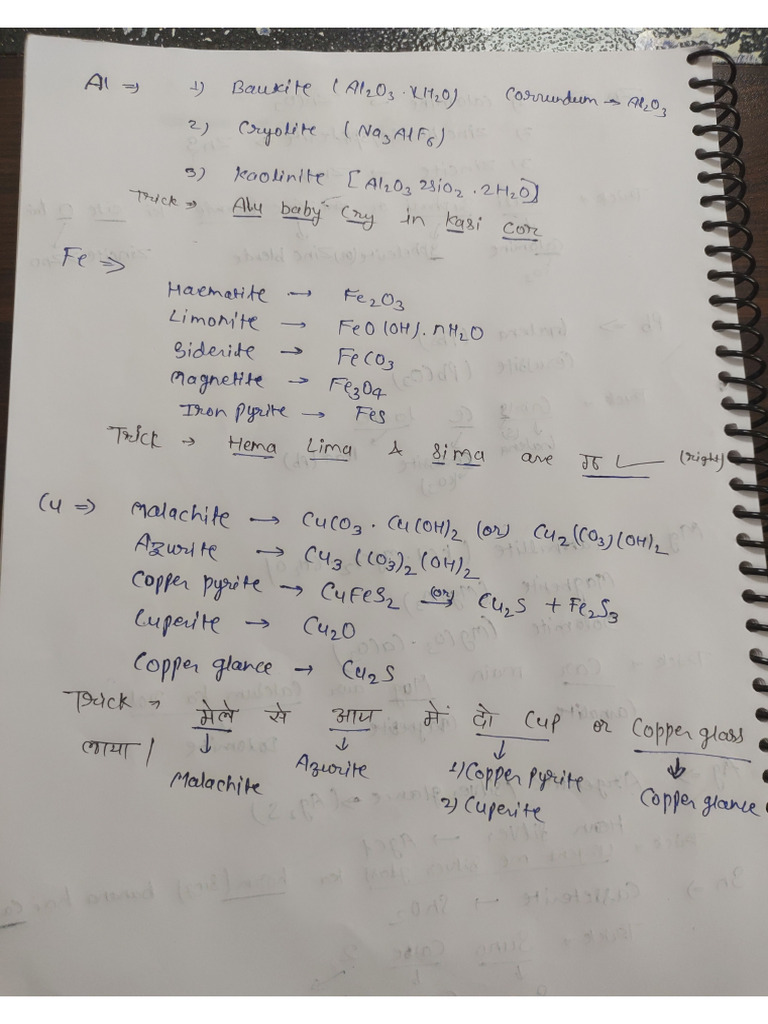 Al ⇒ 1) Bauxite (Al2O3 · xH2O) Corrundum → Al2O3
2) Cryolite (Na3AlF6)
3) Kaolinite [Al2O3 2SiO2 · 2H2O]
Trick → Alu baby cry in kasi cor
Fe ⇒
Haematite → Fe2O3
Limonite → FeO(OH). nH2O
Siderite → FeCO3
Magnetite → Fe3O4
Iron pyrite → FeS
Trick → Hema Lima & sima are (right)
Cu ⇒ Malachite → CuCO3 · Cu(OH)2 (or) Cu2(CO3)(OH)2
Azurite → Cu3(CO3)2(OH)2
Copper pyrite → CuFeS2 (or) Cu2S + Fe2S3
Cuperite → Cu2O
Copper glance → Cu2S
Trick → मेले से आय में दो Cup or Copper glass
लाया।
Malachite Azurite 1) Copper pyrite Copper glance
2) Cuperite